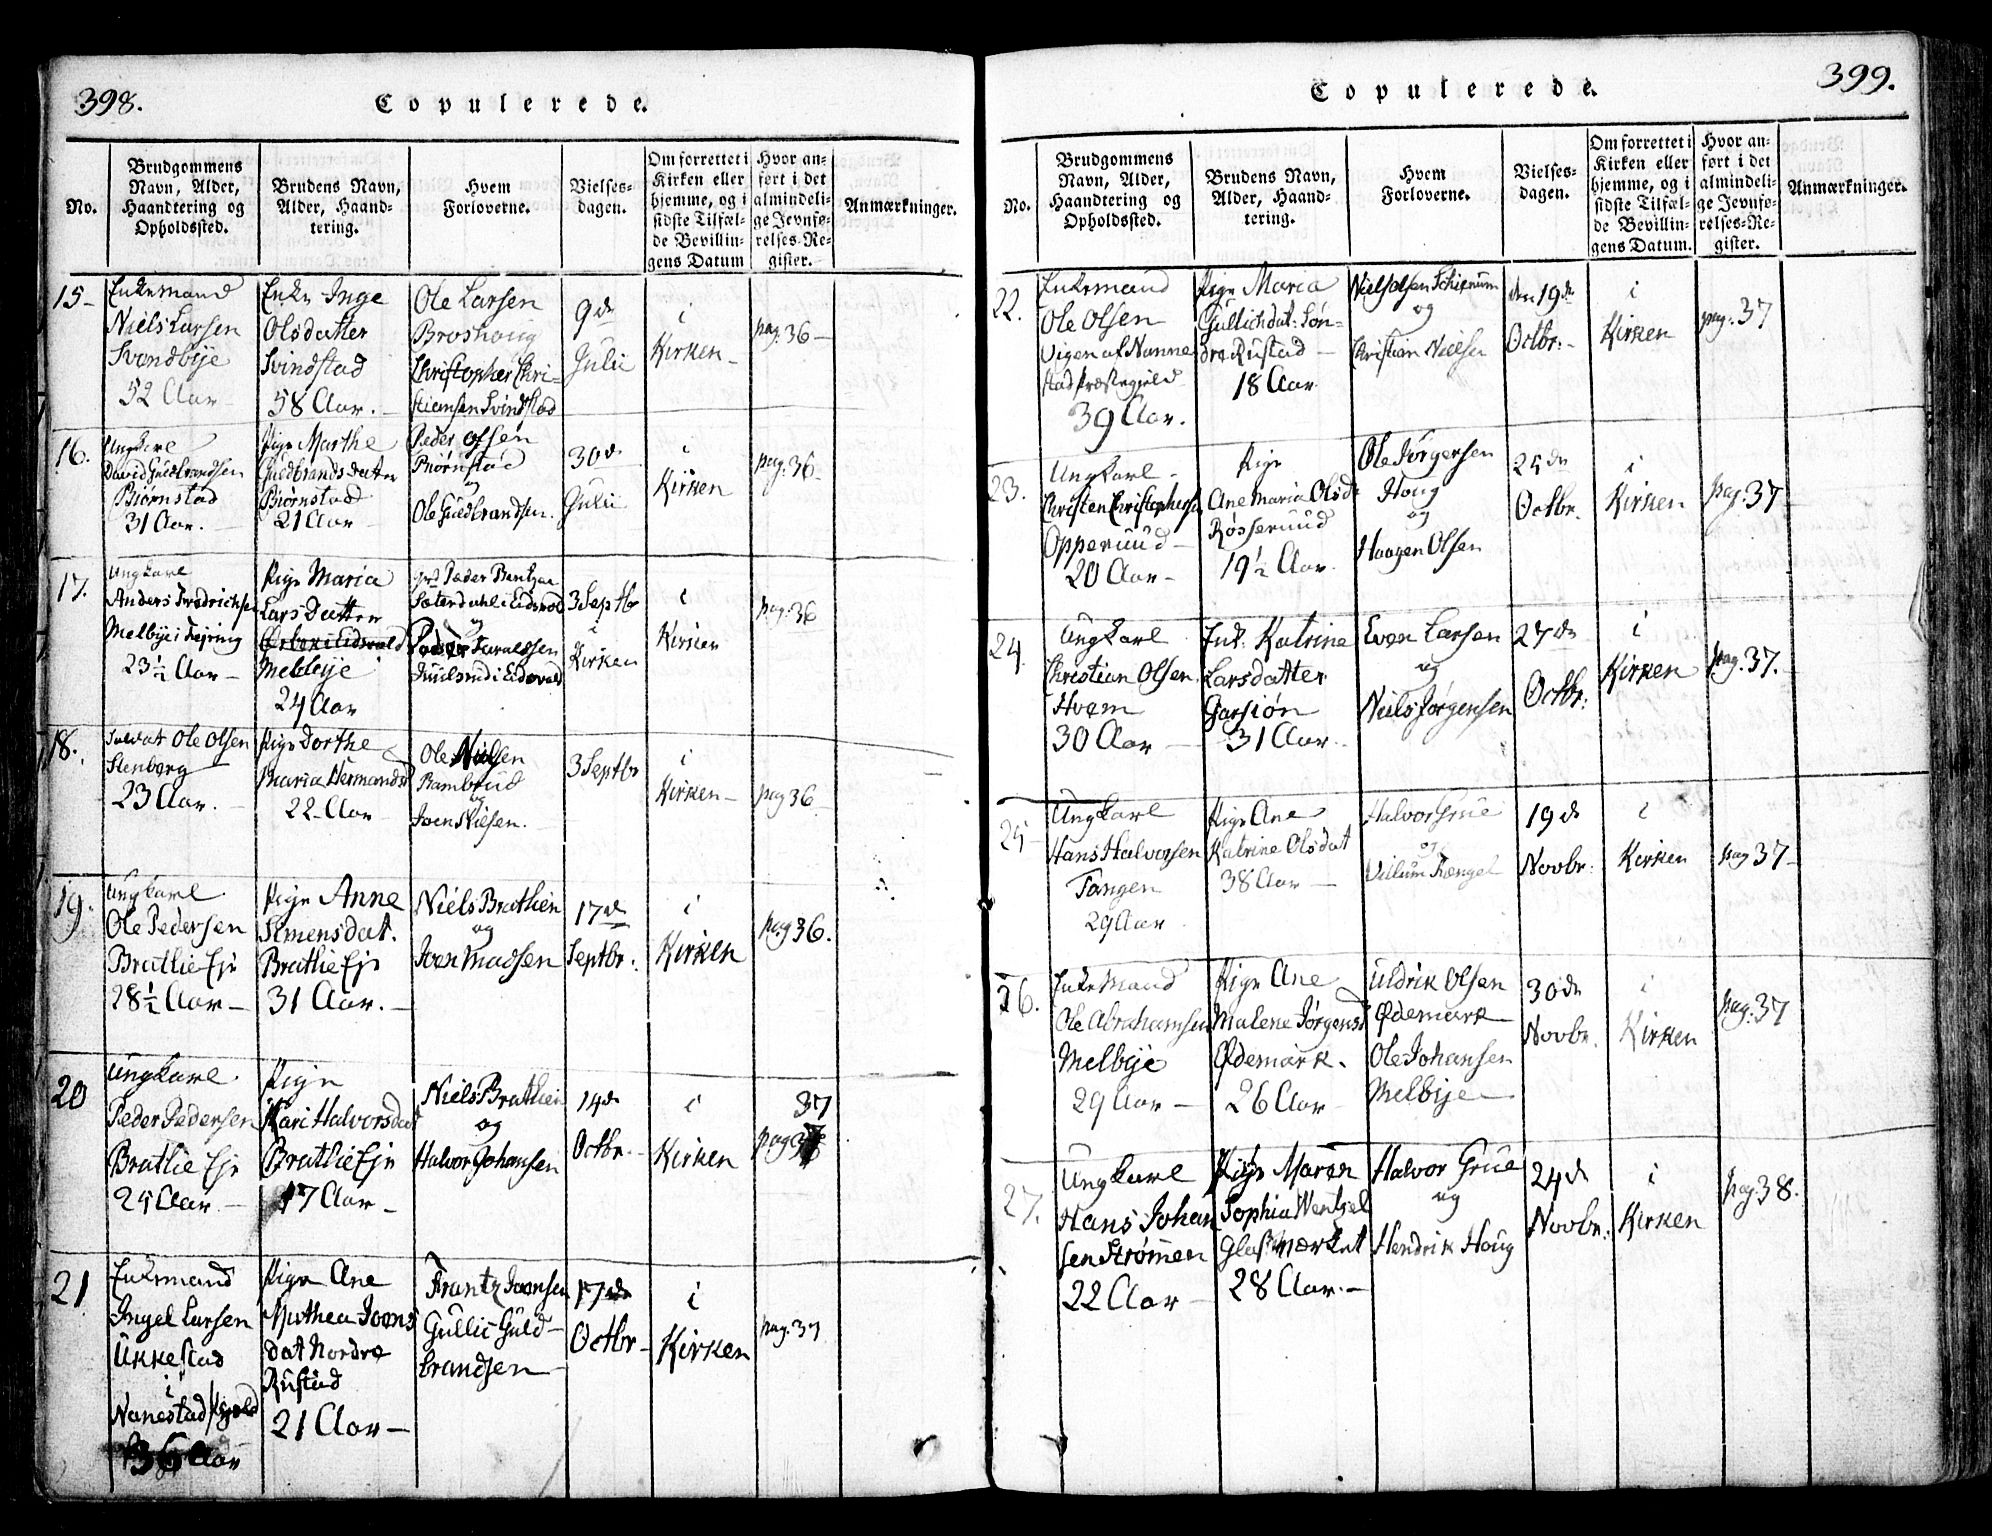 398.
Copulerede.
No.
Brudgommens
Navn, Alder,
Haandtering og
Opholdssted.
Brudens Navn,
Alder, Haand-
tering.
Hvem
Forloverne.
Vielses-
dagen.
Om forrettet i
Kirken eller
hjemme, og i
sidste Tilfæl-
de Bevillin-
gens Datum
Hvor an-
ført i det
almindeli-
ge Jevnfø-
relses-Re-
gister.
Anmærkninger.
15-
Enkemand
Niels Larsen
Svendbye
52 Aar
Enke Inge
Olsdatter
Svindstad
58 Aar.
Ole Larsen
Broshoug
Christopher Chri-
stiansen Svindstad
9de
Julii
i
Kirken-
pag. 36-
16.
Ungkarl
David Guldbrandsen
Biørnstad
31 Aar.
Pige Marthe
Guldbrandsdatter
Biørnstad
21 Aar
Peder Olsen
Biørnstad
og
Ole Guldbrandsen.
30de
Julii
i
Kirken
pag. 36
17.
Ungkarl
Anders Fredrichsen
Melbye i Feiring
23½ Aar
Pige Maria
Lars Datter
Melbye
24 Aar
Peder Bentzen
Sæterdahl i Eidsvold
og
Peder
i Eidsvold
3 Septbr
i
Kirken
i
Kirken
pag. 36
18.
Soldat Ole Olsen
Stenberg
23 Aar.
Pige Dorthe
Maria Hermandsd
22 Aar
Ole Nielsen
Rambrud
og
Iver Nielsen.
3 Septbr
i
Kirken-
pag 36
19.
Ungkarl
Ole Pedersen
Brathie Eje
28½ Aar-
Pige Anne
Simensdat.
Brathie Eje
31 Aar.
Niels Brathien
og
Iver Madsen
17de
Septbr.
i
Kirken
pag 36.
20
Ungkarl
Peder Pedersen
Brathie Eje
25 Aar.
Pige
Kari Halvorsdat
Brathie Eje
17 Aar-
Niels Brathien
og
Halvor Johansen
14de
Octbr.
i
Kirken
37
pag
21
Enkemand
Ingel Larsen
Ukkestad
i
Nanestad Pgjeld
36 Aar
Pige Ane
Mathea Joens
dat Nordre
Rustad
21 Aar-
Frantz Joensen
Gullic Guld-
brandsen
17de
Octbr
i
Kirken
pag. 37
399.
Copulerede.
No.
Brudgommens
Navn, Alder,
Haandtering og
Opholdssted.
Brudens Navn,
Alder, Haand-
tering.
Hvem
Forloverne.
Vielses-
dagen.
Om forrettet i
Kirken eller
hjemme, og i
sidste Tilfæl-
de Bevillin-
gens Datum.
Hvor an-
ført i det
almindeli-
ge Jevnfø-
relses-Re-
gister.
Anmærkninger.
22.
Enkemand
Ole Olsen
Vigen af Nanne
stad Præstegield
39 Aar.
Pige Maria
Gullichdat: Søn-
dre Rustad
18 Aar.
Niels Olsen Schiønum
og
Christian Nielsen
den 19de
Octbr.-
i
Kirken
pag. 37
23.
Ungkarl
Christen Christophersen
Opperuud
20 Aar-
Pige
Ane Maria Olsdr
Røsseruud
19½ Aar.
Ole Jørgensen
Houg
og
Haagen Olsen
25de
Octbr.
i
Kirken
pag. 37
24.
Ungkarl
Christian Olsen
Hvem
30 Aar
Enk. Katrine
Larsdatter
Garsiøn
31 Aar.
Even Larsen
og
Niels Jørgensen
27de
Octbr:
i
Kirken
pag. 37.
25
Ungkarl
Hans Halvorsen
Tangen
29 Aar
Pige Ane
Katrine Olsdat
38 Aar
Halvor Grue
og
Vilum Rængel
19de
Novbr:
i
Kirken
pag 37-
26.
Enkemand
Ole Abrahamsen
Melbye
29 Aar-
Pige Ane
Malene Jørgensd
Ødemark.
26 Aar
Uldrik Olsen
Ødemark
Ole Johansen
Melbye
30de
Novbr.
i
Kirken
pag. 37
27.
Ungkarl
Hans Johan
sen Strømmen
22 Aar
Pige Maren
Sophia Wentzel
Glasværket
28 Aar.-
Halvor Grue
og
Hendrik Houg
24de
Novbr.
i
Kirken
pag. 38.